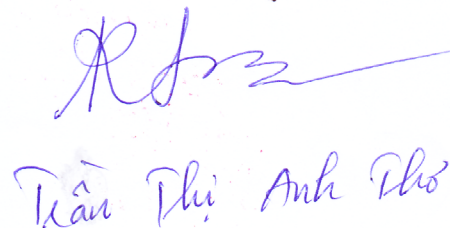 Trần Thị Anh Thơ